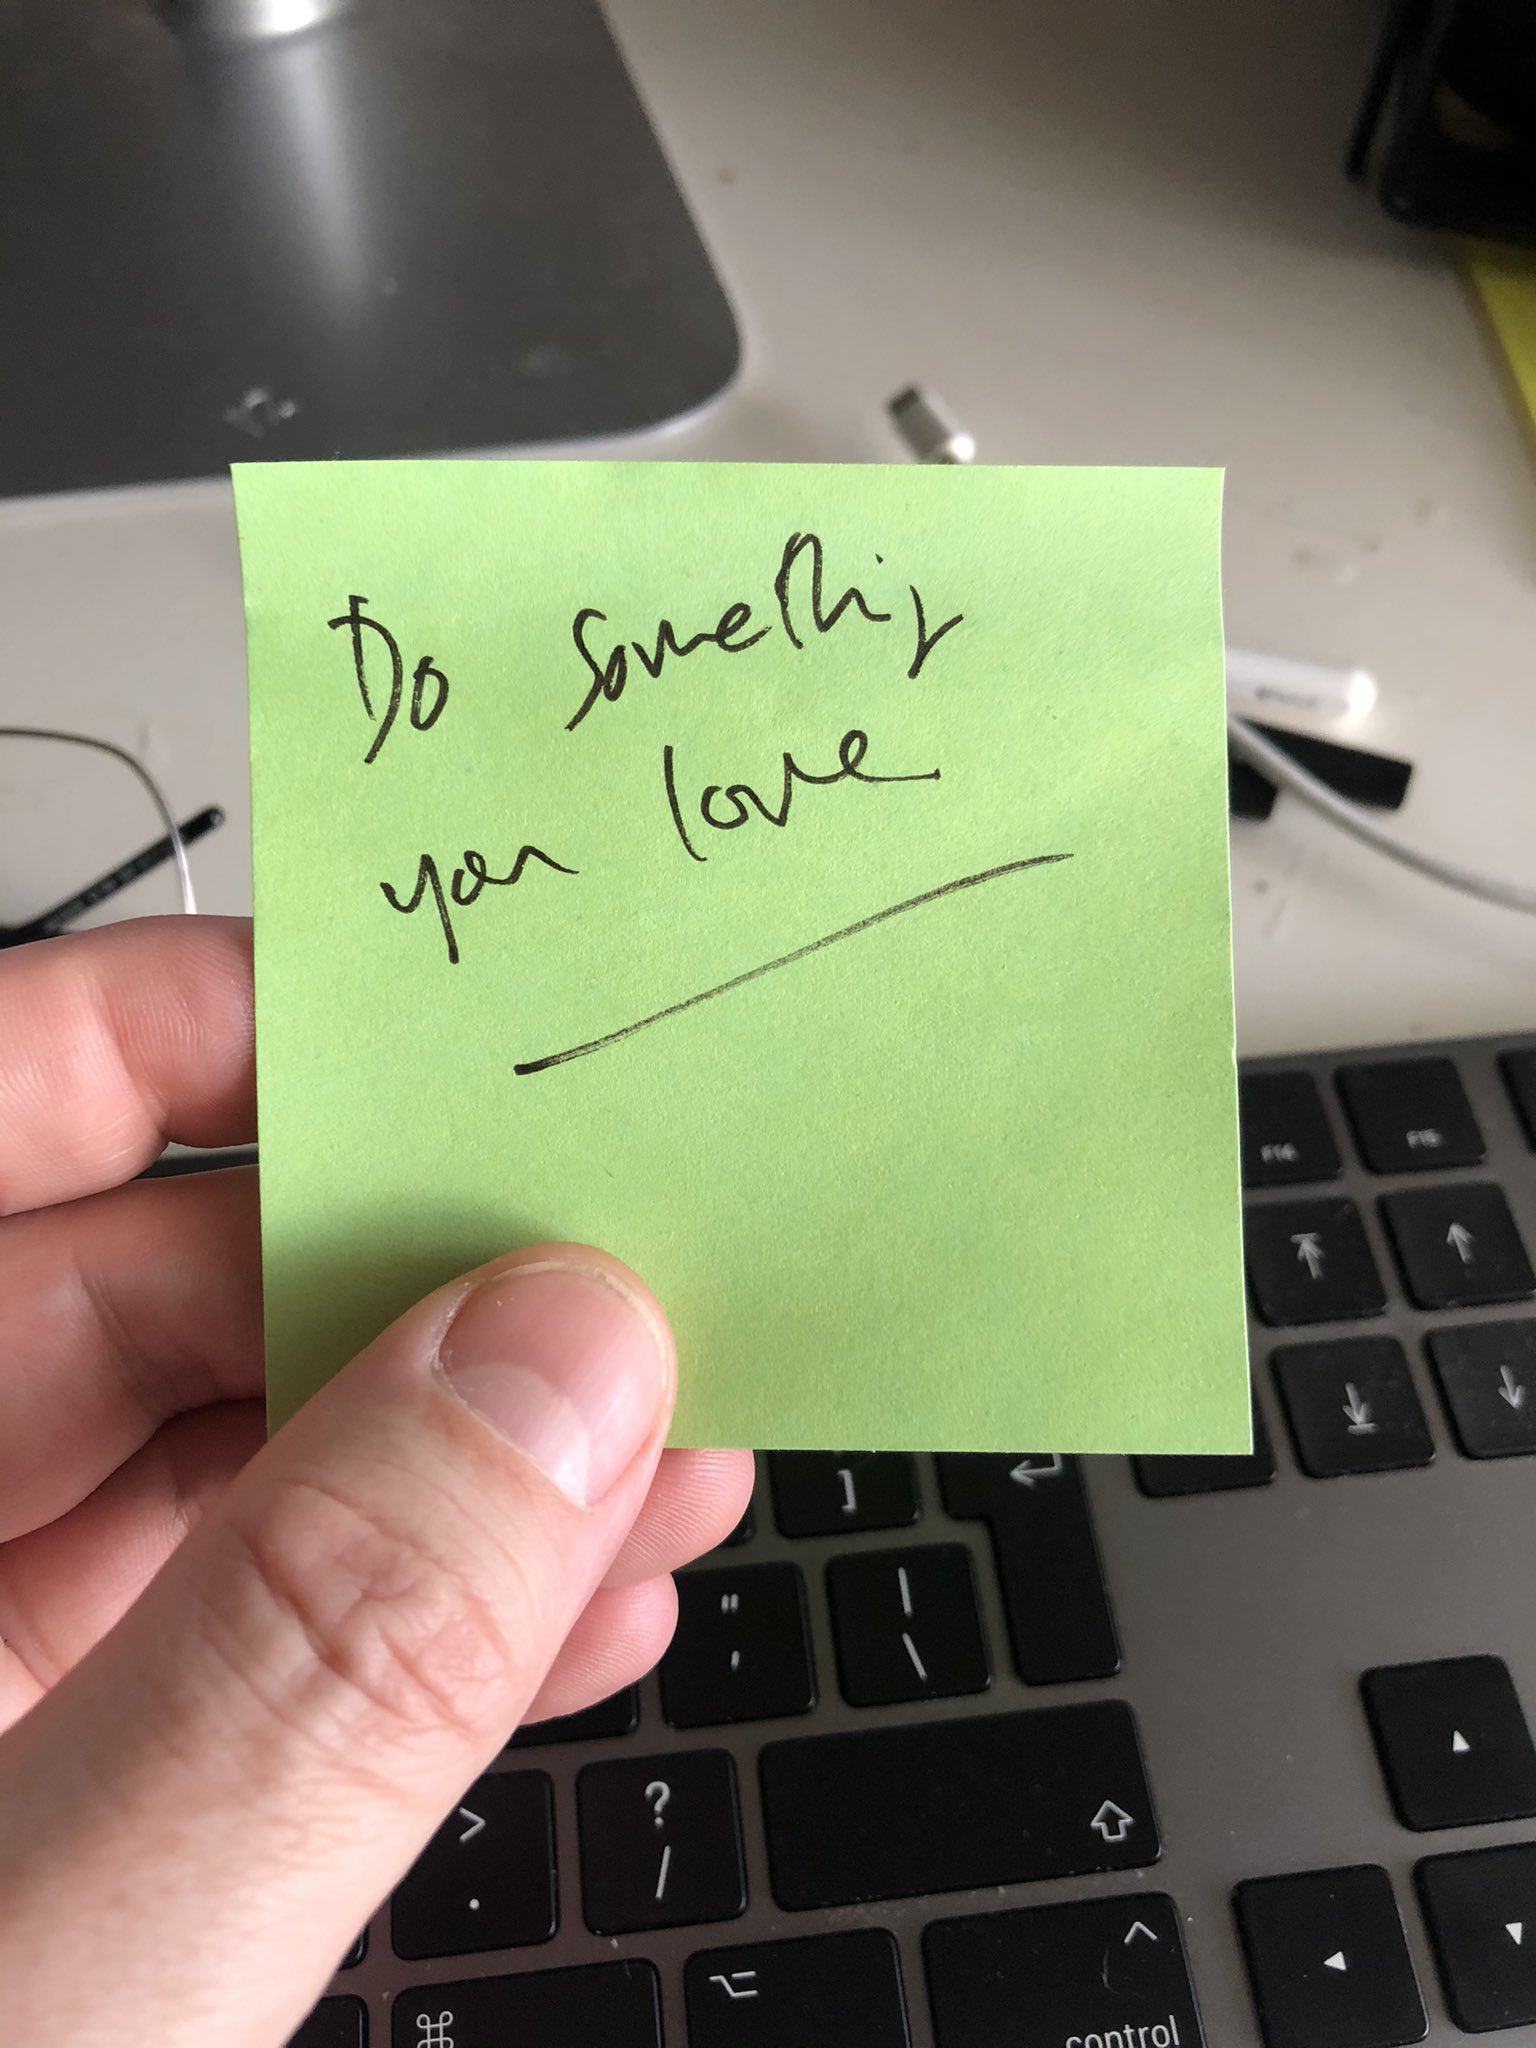 Do something
you love
F14
F15
]
"
'
|
\
>
.
?
/
⌘
⌥
^
control